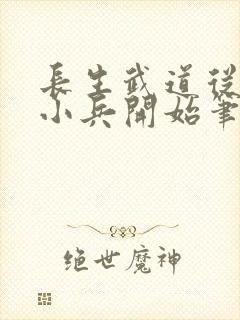 長生武道從
小兵開始筆
绝世魔神